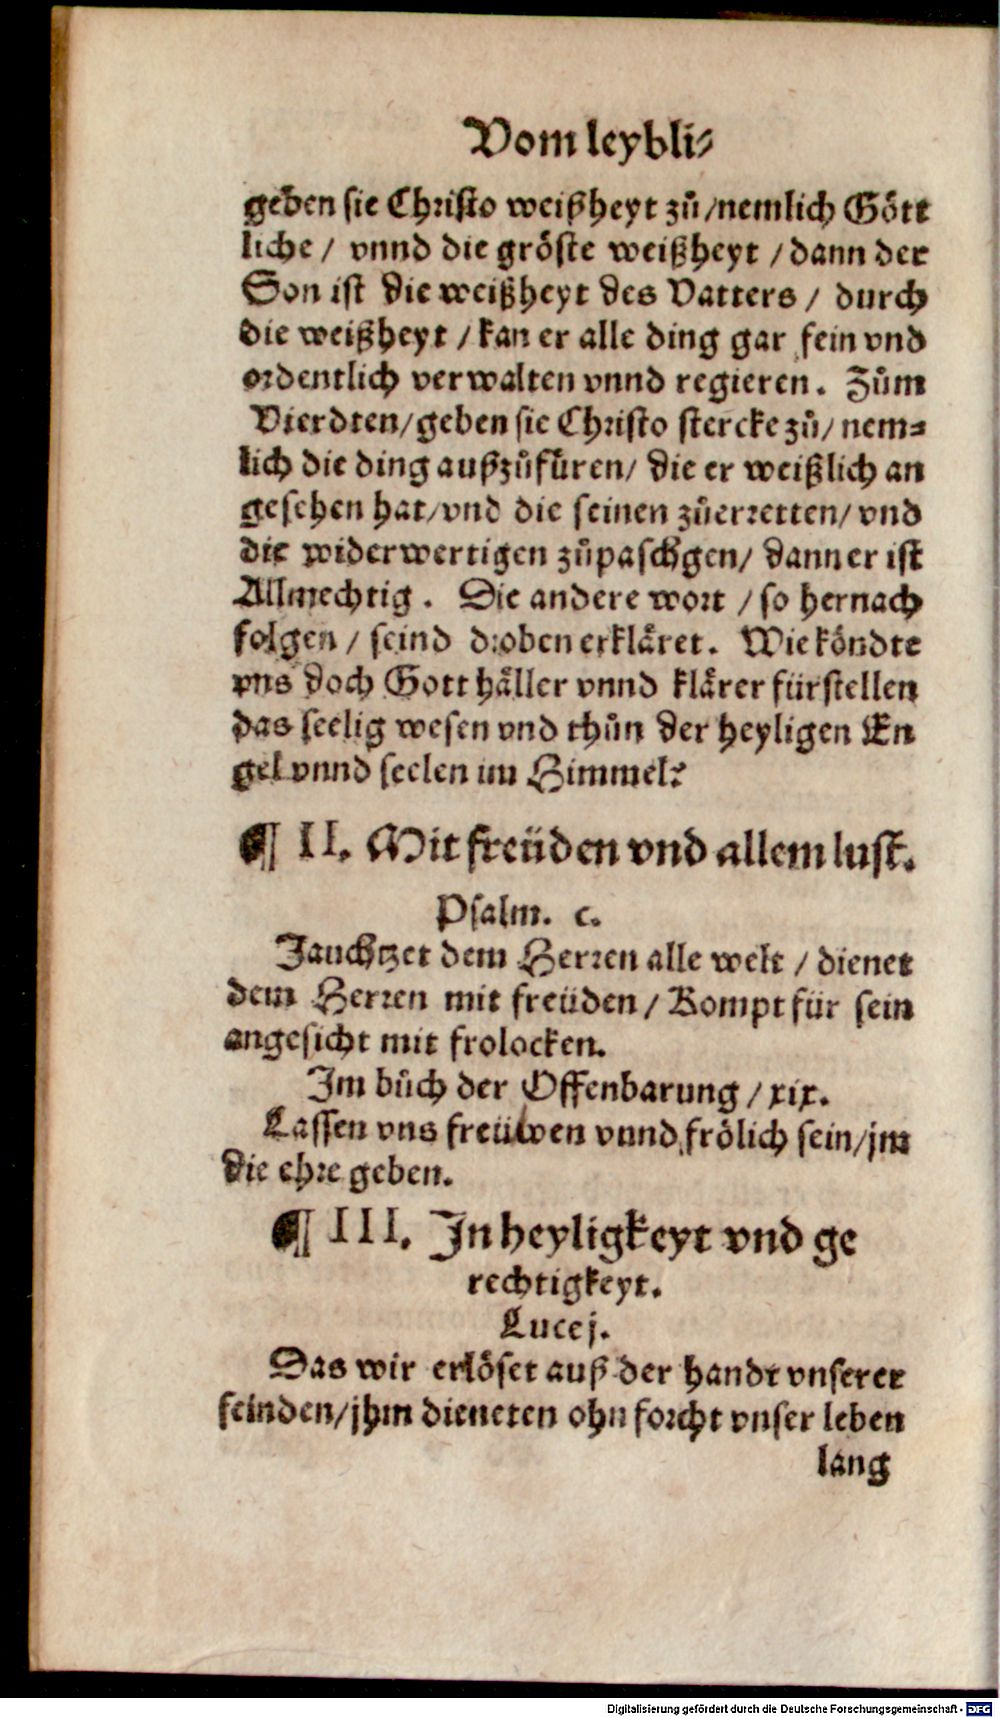 Vom leybli⸗
geben sie Christo weißheyt zů/nemlich Gött
liche / vnnd die gröste weißheyt / dann der
Son ist die weißheyt des Vatters / durch
die weißheyt / kan er alle ding gar fein vnd
ordentlich verwalten vnnd regieren. Zům
Vierdten/geben sie Christo stercke zů/ nem⸗
lich die ding außzůfüren/ die er weißlich an
gesehen hat/vnd die seinen zůerretten/ vnd
die widerwertigen zůpaschgen/ dann er ist
Allmechtig. Die andere wort / so hernach
folgen / seind droben erkläret. Wie köndte
vns doch Gott häller vnnd klärer fürstellen
das seelig wesen vnd thůn der heyligen En
gel vnnd seelen im Himmel?
¶ II. Mit freüden vnd allem lust.
Psalm. c.
Jauchtzet dem Herren alle welt / dienet
dem Herren mit freüden / Kompt für sein
angesicht mit frolocken.
Im bůch der Offenbarung / xix.
Lassen vns freüwen vnnd frölich sein/jm
die ehre geben.
¶ III. In heyligkeyt vnd ge
rechtigkeyt.
Luce j.
Das wir erlöset auß der handt vnserer
feinden/jhm dieneten ohn forcht vnser leben
lang
Digitalisierung gefördert durch die Deutsche Forschungsgemeinschaft - DFG